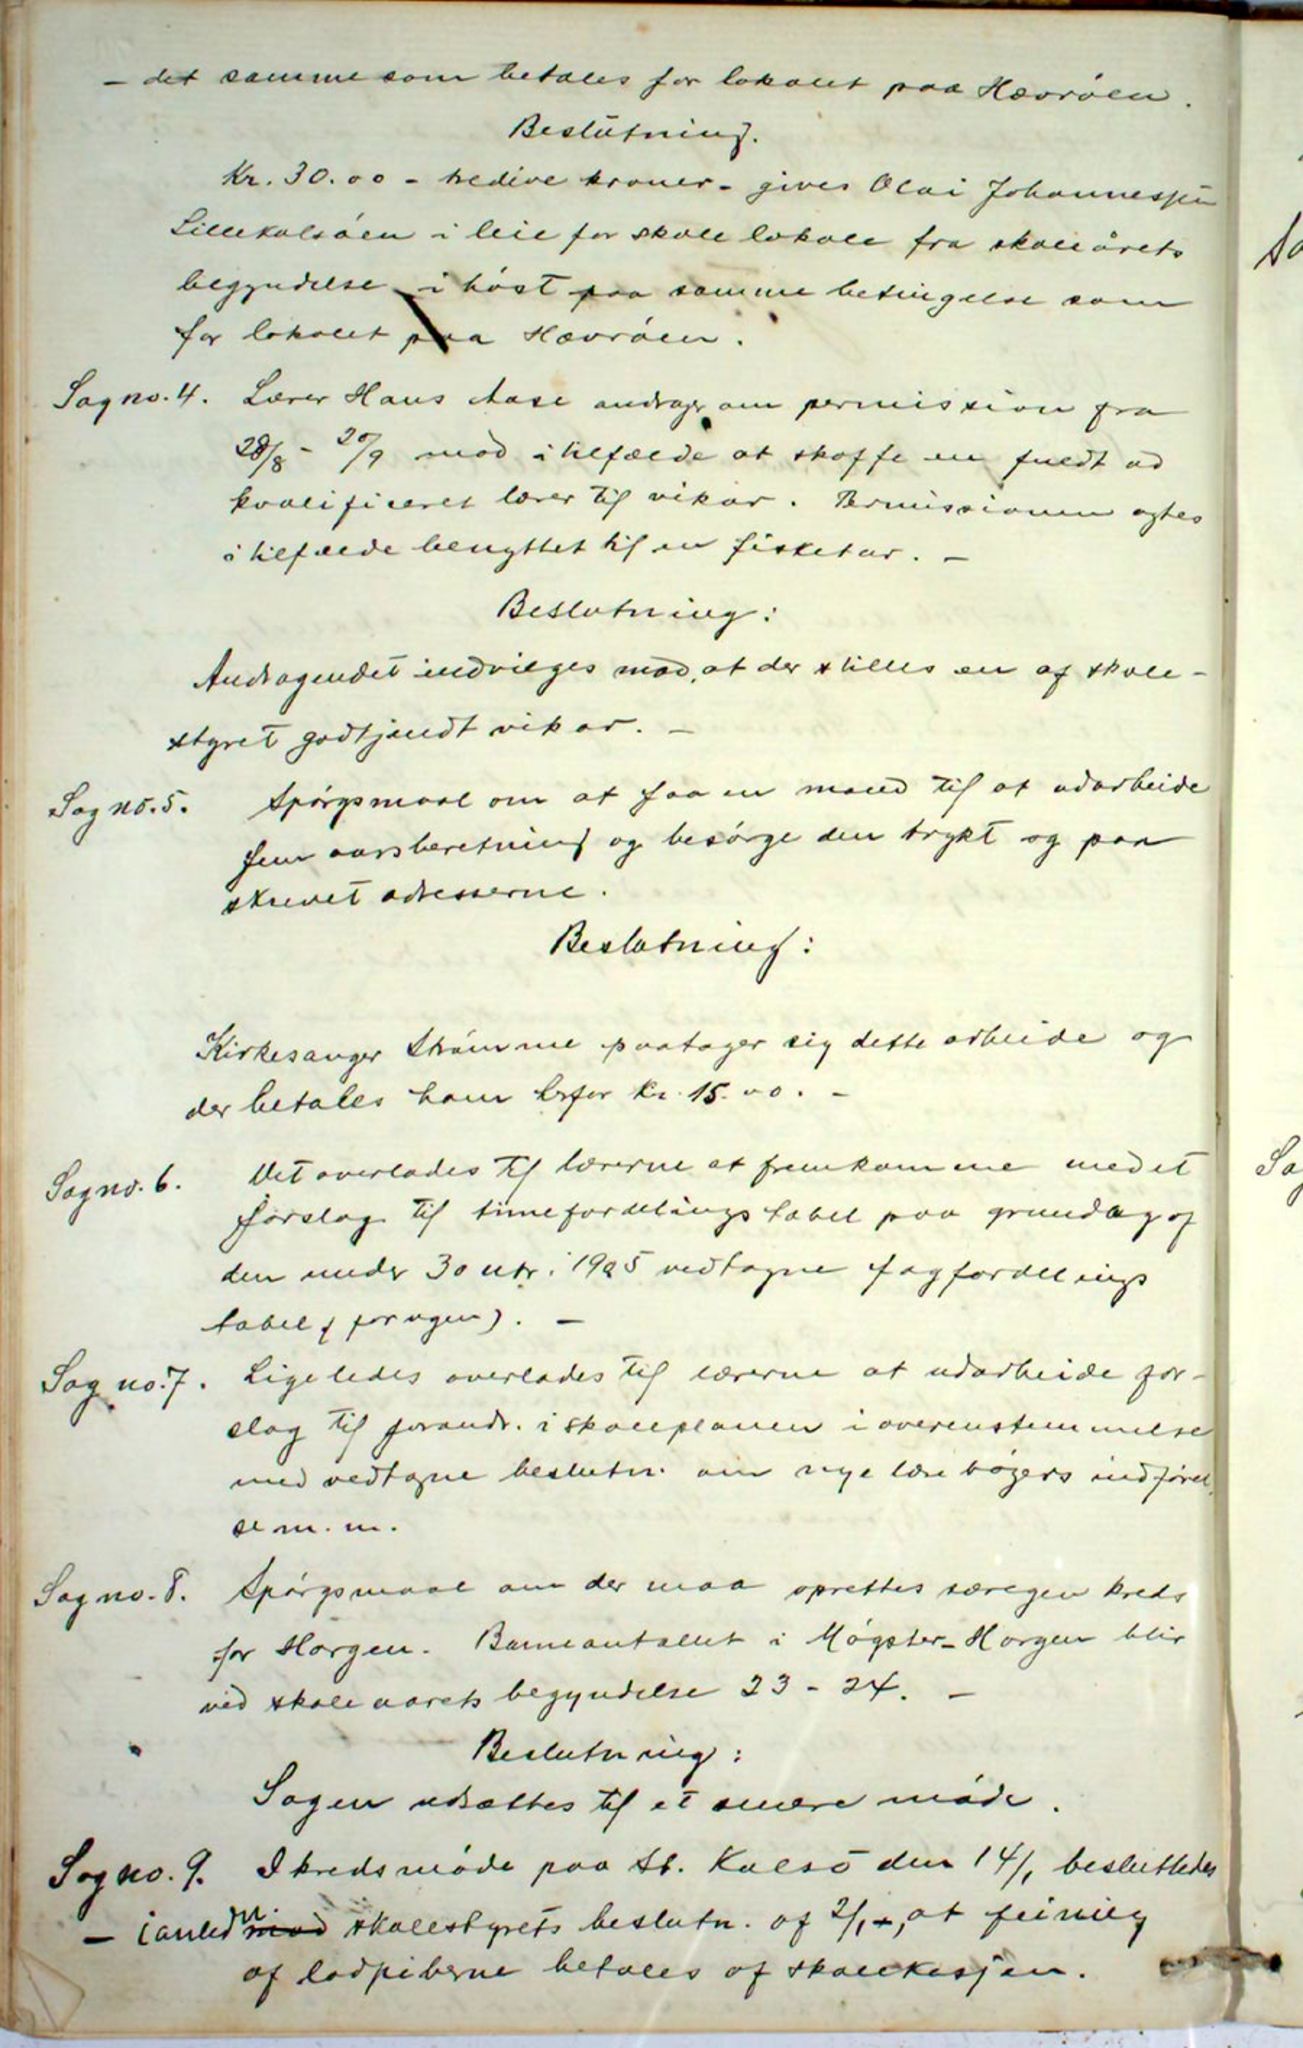 - det samme som betales for lokalet paa Hævröen.
Beslutning.
Kr. 30.00 - tredive kroner - gives Olai Johannessen
Lillekalsöen i leie for skolelokale fra skoleårets
begyndelse i höst paa samme betingelse som
for lokalet paa Hævröen.
Sag no. 4. Lærer Hans Aase andrager om permission fra
28/8 - 20/9 mod i tilfælde at skaffe en fuldt ud
kvalificeret lærer til vikar. Permissionen agtes
i tilfælde benyttet til en fisketur. -
Beslutning:
Andragendet indvilges mod, at der stilles en af skole-
styret godkjendt vikar. -
Sag no. 5. Spörgsmaal om at faa en mand til at udarbeide
femaarsberetning og besörge den trykt og paa
skrevet adresserne.
Beslutning:
Kirkesanger Strömme paatager sig dette arbeide og
der betales ham herfor kr. 15.00. -
Sag no. 6. Det overlades til lærerne at fremkomme med et
forslag til timefordelingstabel paa grundlag af
den under 30 1905 vedtagne fagfordelings
tabel (for ugen). -
Sag no. 7. Ligeledes overlades til lærerne at udarbeide for-
slag til forandr. i skoleplanen i overenstemmelse
med vedtagne beslutn. om nye lærebögers indförel-
se m. m.
Sag no. 8. Spörgsmaal om der maa oprettes særegen kreds
for Horgen. Barneantallet i Mögster-Horgen blir
ved skoleaarets begyndelse 23 - 24. -
Beslutning:
Sagen udsættes til et senere möde.
Sag no. 9. I kredsmöde paa St. Kalsö den 14/1 besluttedes
- i anledn. skolestyrets beslutn. af 2/1 -, at feining
af lodpiberne betales af skolekassen.